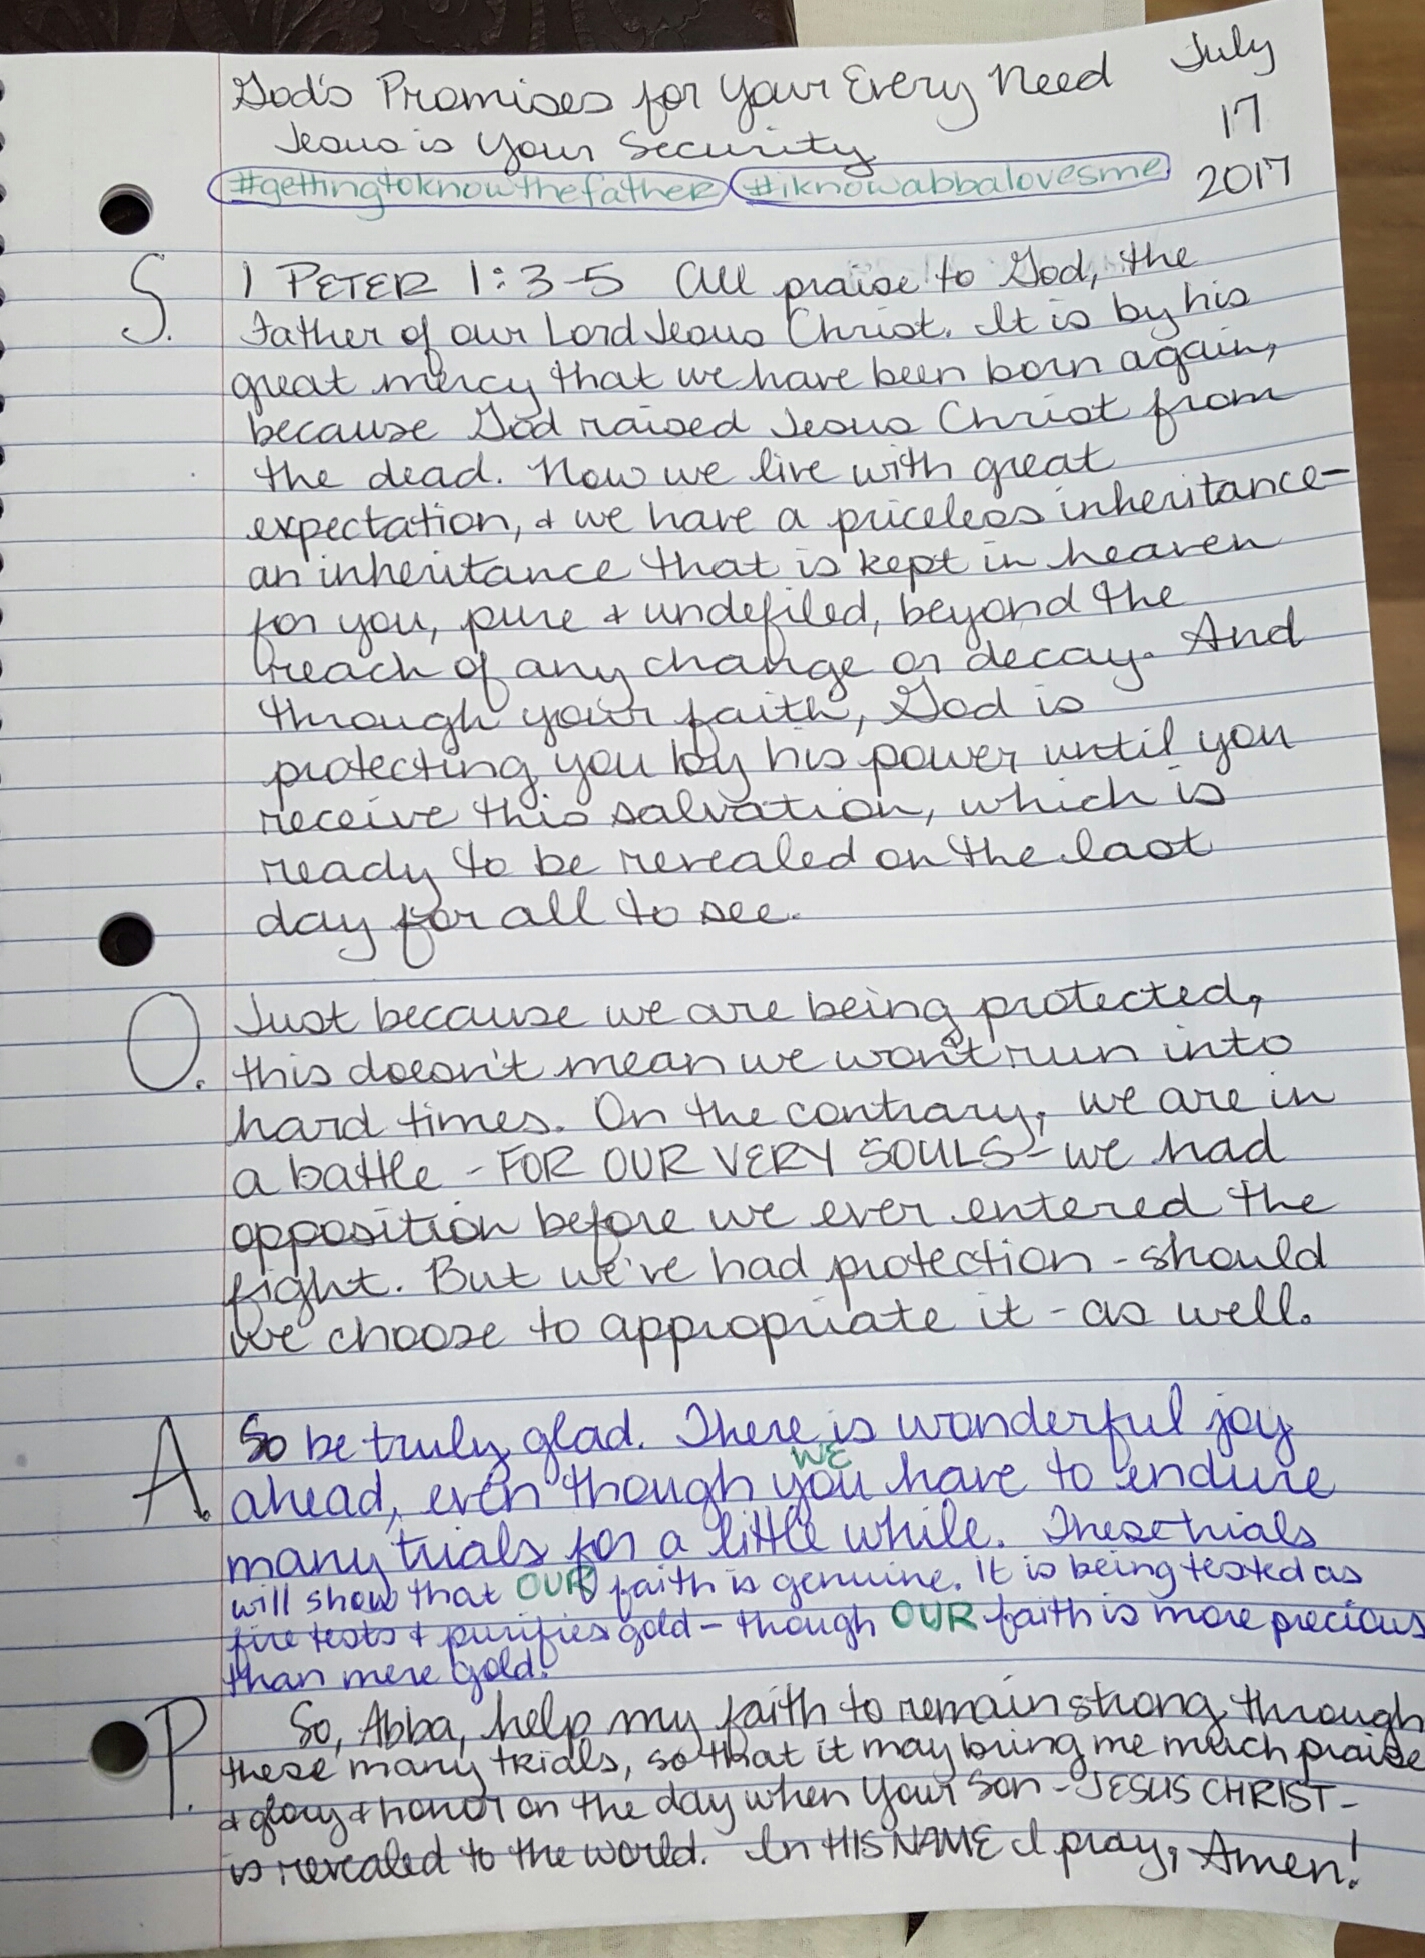 God's Promises for Your Every Need
July
17
2017
Jesus is Your Security
#gettingtoknowthefather #iknowabbalovesme
S. 1 PETER 1:3-5 All praise to God, the
Father of our Lord Jesus Christ. It is by his
great mercy that we have been born again,
because God raised Jesus Christ from
the dead. Now we live with great
expectation, & we have a priceless inheritance-
an inheritance that is kept in heaven
for you, pure & undefiled, beyond the
reach of any change or decay. And
through your faith, God is
protecting you by his power until you
receive this salvation, which is
ready to be revealed on the last
day for all to see.
O. Just because we are being protected,
this doesn't mean we won't run into
hard times. On the contrary, we are in
a battle - FOR OUR VERY SOULS - we had
opposition before we ever entered the
fight. But we've had protection - should
we choose to appropriate it - as well.
A. So be truly glad. There is wonderful joy
WE
ahead, even though you have to endure
many trials for a little while. These trials
will show that OUR faith is genuine. It is being tested as
fire tests & purifies gold - though OUR faith is more precious
than mere gold.
P. So, Abba, help my faith to remain strong through
these many trials, so that it may bring me much praise
& glory & honor on the day when Your Son - JESUS CHRIST -
is revealed to the world. In HIS NAME I pray, Amen!